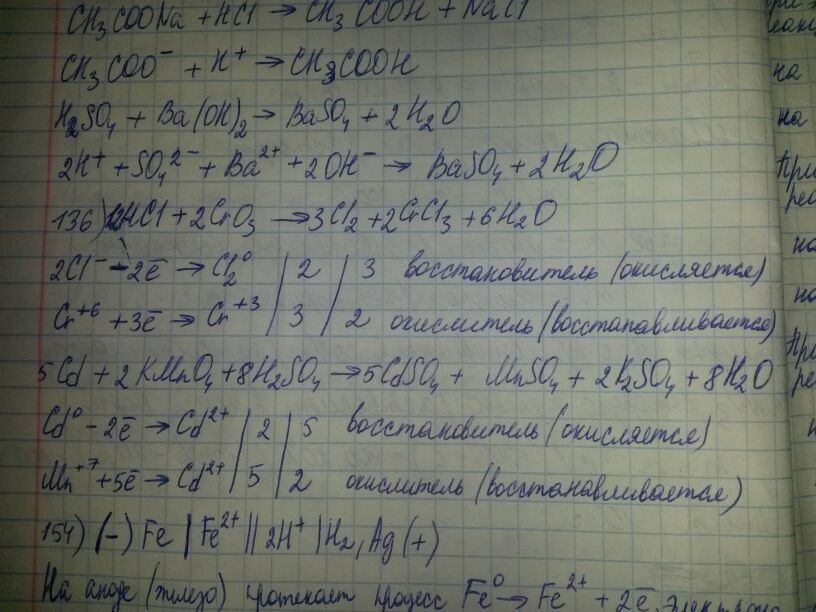 CH₃COONa + HCl → CH₃COOH + NaCl
CH₃COO⁻ + H⁺ → CH₃COOH
H₂SO₄ + Ba(OH)₂ → BaSO₄ + 2H₂O
2H⁺ + SO₄²⁻ + Ba²⁺ + 2OH⁻ → BaSO₄ + 2H₂O
136) 12HCl + 2CrO₃ → 3Cl₂ + 2CrCl₃ + 6H₂O
2Cl⁻ - 2ē → Cl₂⁰ | 2 | 3 восстановитель (окисляется)
Cr⁺⁶ + 3ē → Cr⁺³ | 3 | 2 окислитель (восстанавливается)
5Cd + 2KMnO₄ + 8H₂SO₄ → 5CdSO₄ + MnSO₄ + 2K₂SO₄ + 8H₂O
Cd⁰ - 2ē → Cd²⁺ | 2 | 5 восстановитель (окисляется)
Mn⁺⁷ + 5ē → Cd²⁺ | 5 | 2 окислитель (восстанавливается)
154) (-) Fe | Fe²⁺ || 2H⁺ | H₂, Ag (+)
На аноде (железо) протекает процесс Fe⁰ → Fe²⁺ + 2ē
на
на
на